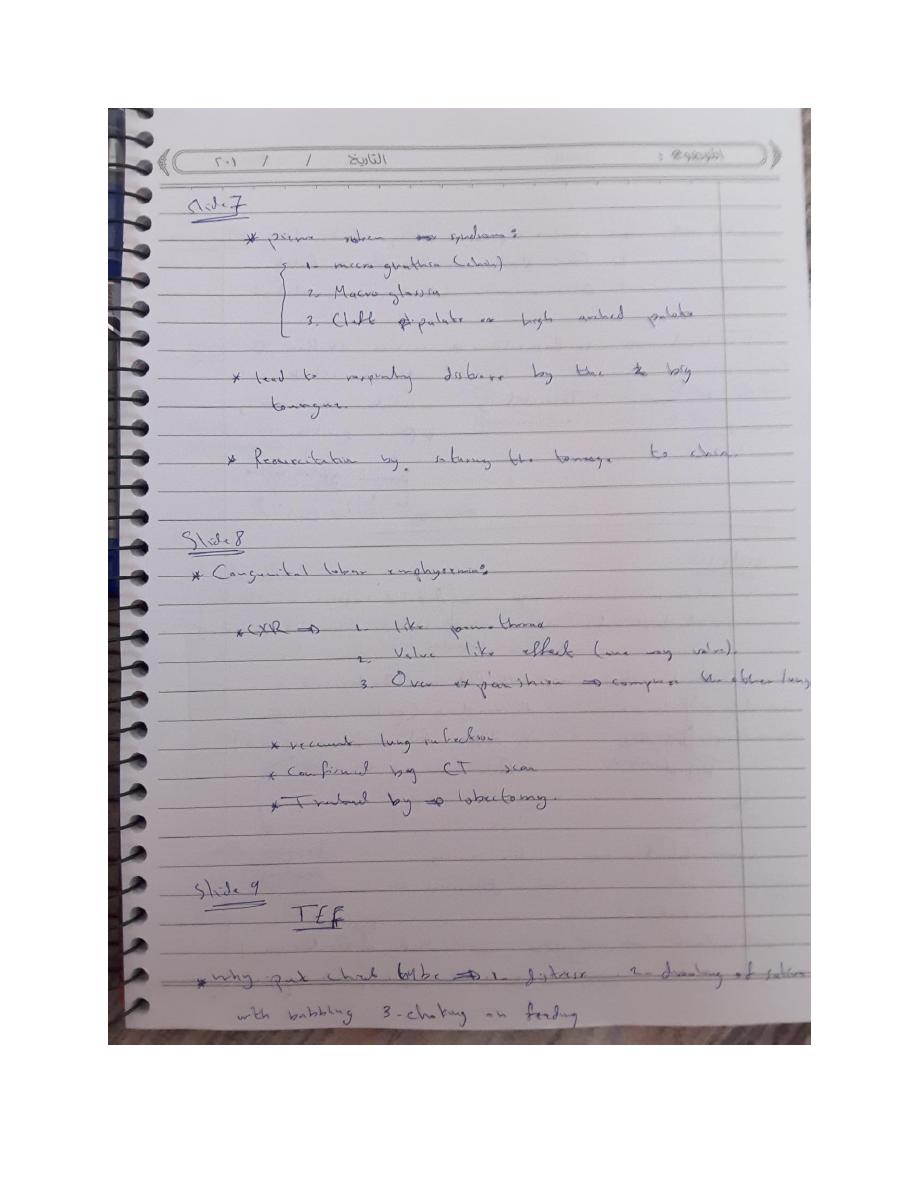 الموضوع : التاريخ / / ٢٠١
Slide 7
* pierre robin syndrome:
1- micro gnathia (chin)
2- Macro glossia
3. Cleft palate or high arched palate
* lead to respiratory distress by the big
tounge.
* Resuscitation by. suturing the tounge to chin.
Slide 8
* Congenital lobar emphysemia:
* CXR ⇒ 1. like pnemothorax
2. Valve like effect (one way valve).
3. Over expanshion ⇒ compress the other lung
* recurrent lung infection
* Confirmed by CT scan
* Treated by ⇒ lobectomy.
Slide 9
TEF
* Why put chest tube ⇒ 1- distress 2- drooling of saliva
with bubbling 3- choking on feeding